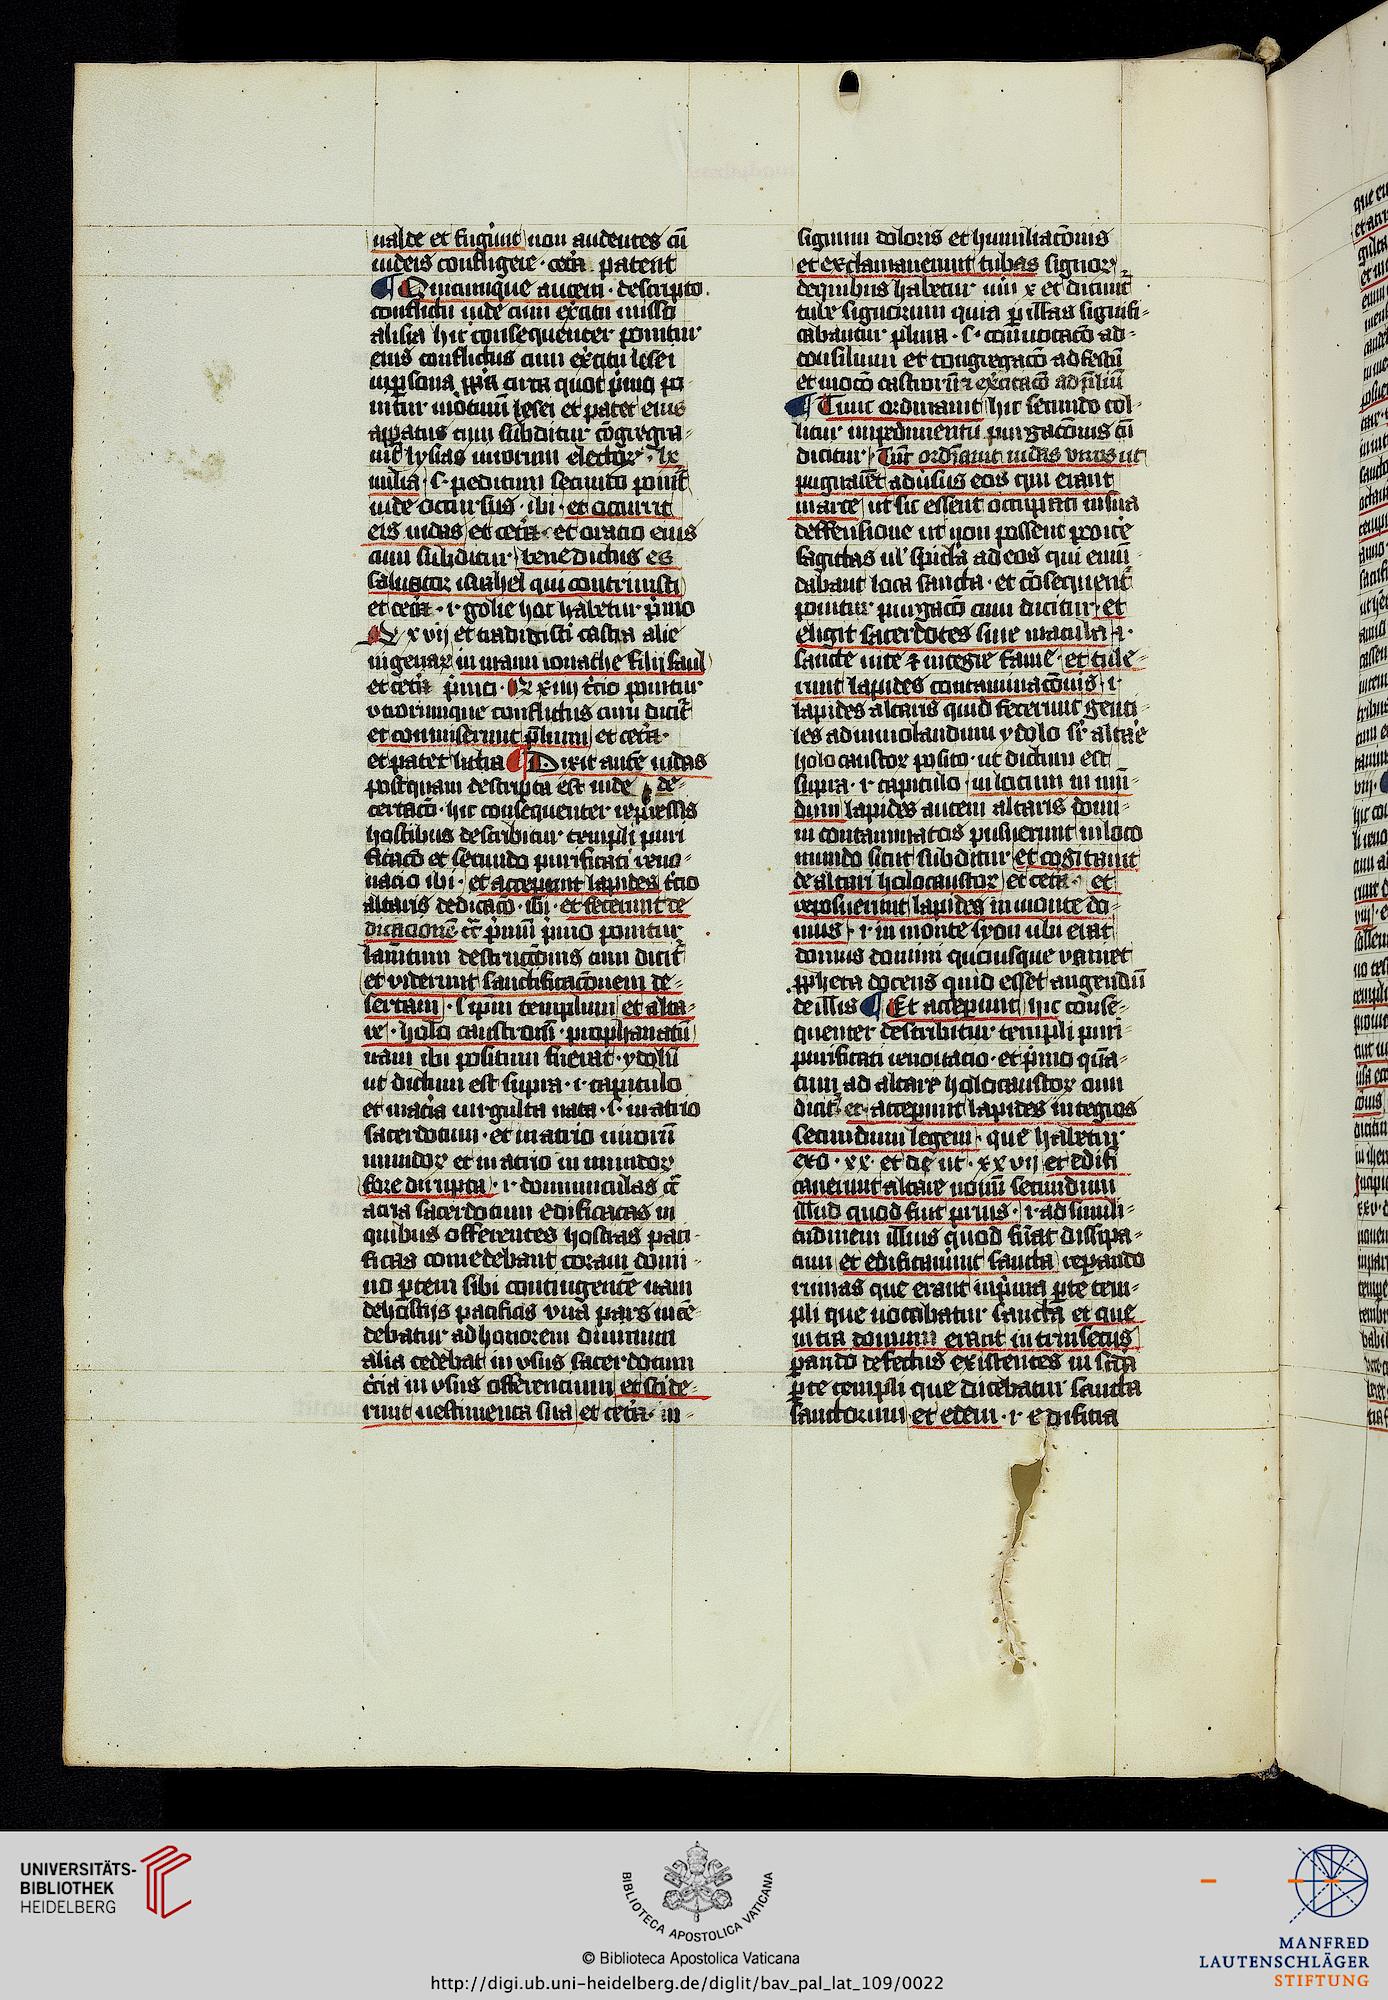 ualde et fugiũt non audentes cũ
iudeis confligere · cetã patent
Quicumque autem · descripto
conflictu iude cum exc̃itu missi
a lisia hic consequenter ponitur
eius conflictus cum exc̃itu lesei
in persona pp̃ia circa quot p̃mo po
nitur motiuũ lesei et patet eius
apparatus cum subditur cõgrega-
uit lysias uirorum elector · lx
milia · s · peditum secundo ponit̃
iude occursus · ibi · et occurrit
eis iudas et cetã · et oracio eius
cum subditur benedictus es
saluator israhel qui contriuisti
et cetã · i · golie hoc habetur p̃mo
R̃ xvij et tradidisti castra alie
nigenar in manu ionathe filij saul
et cetã p̃mi · R̃ xiiij t̃cio ponitur
utrorumque conflictus cum dicit̃
et commiserunt p̃lium et cetã ·
et patet littera Dixit aut̃e iudas
postquam descripta est iude de-
certacõ · hic consequenter repressis
hostibus describitur templi puri
ficacõ et secundo purificati reno-
uacio ibi · et acceperunt lapides t̃cio
altaris dedicacõ · ibi · et fecerunt de
dicacionẽ c̃t p̃mũ p̃mo ponitur
lam̃tum destructõnis cum dicit̃
et viderunt sanctificacõnem de-
sertam · s ip̃m templum et alta-
re · holocaustrorũ · prophanatũ
nam ibi positum fuerat · ydolũ
ut dictum est supra · i · capitulo
et in atria uirgulta nata · s · in atrio
sacerdotum · et in atrio uirorũ
mundor et in atrio in mundor
fore dirupta · i · domunculas c̃t
atria sacerdotum edificatas in
quibus offerentes hostias paci-
ficas comedebant coram domi-
no partem sibi contingentẽ nam
de hostijs pacificis una pars incẽ-
debatur ad honorem diuinum
alia cedebat in usus sacerdotum
t̃cia in usus offerencium et scide-
runt uestimenta sua et cetã · in-
signum doloris et humiliacõnis
et exclamauerunt tubas signor
de quibus habetur nũi x et dicunt̃
tube signorum quia p̃ illas signifi-
cabantur plura · s · conuocacõ ad-
consilium et congregacõ ad festũ
et mocõ castrorũ et exc̃itacõ ad p̃liũ
Tunc ordinauit hic secundo tol-
litur impedimentũ purgacõnis cũ
dicitur Tũc ordinauit iudas uiros ut
pugnarẽt aduersus eos qui erant
in arce ut sic essent occupati in sua
deffensione ut non possent proicẽ
sagittas uel spicla ad eos qui emũ
dabant loca sancta · et cõsequent̃
ponitur purgacõ cum dicitur et
eligit sacerdotes sine macula i ·
sancte uite et integre fame · et tule-
runt lapides contaminacõnis i
lapides altaris quid fecerunt genti-
les ad immolandum ydolo sr̃ altare
holocaustor posito · ut dictum est
supra · i capitulo · in locum in mũ-
dum lapides autem altaris domi-
ni contaminatos posuerunt in loco
mundo sicut subditur et cogitauit
de altari holocaustor et cetã · et
reposuerunt lapides in monte do-
mus · i · in monte syon ubi erat
domus domini quousque ueniret
pp̃heta docens quid esset augendũ
de illis Et acceperunt hic conse-
quenter describitur templi puri-
purificati renouatio · et p̃mo quã-
tum ad altare holocaustor cum
dicit̃ et · acceperunt lapides integros
secundum legem · que habetur
exo · xx · et de ut · xxvij et edifi
cauerunt altare nouũ secundum
illud quod fuit prius · i · ad simili-
tudinem illius quod fũat dissipa-
tum et edificauerunt sancta reparando
ruinas que erant in p̃ma parte tem-
pli que uocabatur sancta et que
intra domum erant intrinsecus
parando defectus existentes in sc̃da
parte templi que dicebatur sancta
sanctorum et edem · i · edificia
UNIVERSITÄTS-
BIBLIOTHEK
HEIDELBERG
BIBLIOTECA APOSTOLICA VATICANA
© Biblioteca Apostolica Vaticana
http://digi.ub.uni-heidelberg.de/diglit/bav_pal_lat_109/0022
MANFRED
LAUTENSCHLÄGER
STIFTUNG